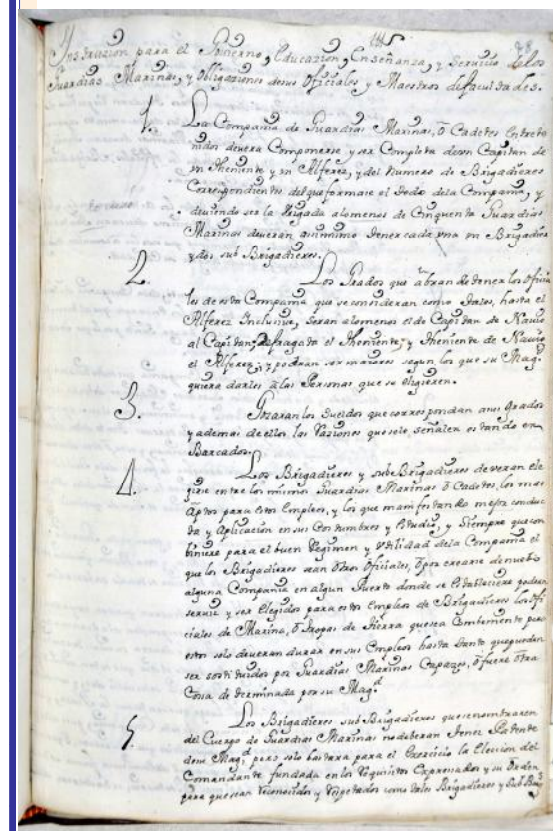 Instruzion para el Govierno, Educazion, Enseñanza, y Servicio delos
Guardias Marinas, y Obligaziones desus Oficiales y Maestros defacultades.
1. La Compañia de Guardias Marinas, ò Cadetes Entrete
nidos devera Componerse y ser Completa deun Capitan de
un Theniente y un Alferez, y del Numero de Brigadieres
Correspondientes delque formase el todo dela Compañia, y
deviendo ser la Brigada alomenos de Cinquenta Guardias
Marinas deveran asimismo tener cada una un Brigadier
y dos sub Brigadieres.
2. Los Grados que abran detener los Oficia
les de esta Compañia que seconsideran como tales, hasta el
Alferez Inclusive, seran alomenos el de Capitan de Navio
al Capitan, defragata el Theniente, y Theniente de Navio
el Alferez, y podran ser maiores segun los que su Magd.
quiera darles à las Personas que se eligieren.
3. Gozaran los Sueldos que correspondan asus Grados
y ademas de ellos las Raziones que sele señalen estando en
Barcados.
4. Los Brigadieres y sub Brigadieres deveran ele
girse entre los mismos Guardias Marinas ò Cadetes, los mas
Aptos para estos Empleos, y los que manifestando mejor conduc
ta y Aplicazion en sus Costumbres y Estudio, y Siempre quecom
biniere para el buen Regimen y Utilidad dela Compañia el
que los Brigadieres sean Otros Oficiales, ò por crearse denuebo
alguna Compañia en algun Puerto donde se Estableciere podran
servir y ser Elegidos para estos Empleos de Brigadieres los Ofi
ciales de Marina, ò tropas de tierra quesea Combeniente pero
estos solo deveran durar en sus Empleos hasta tanto quepuedan
ser sostituidos por Guardias Marinas Capazes, ò fuere Otra
Cosa determinada por su Magd.
5. Los Brigadieres sub Brigadieres que senombraren
del Cuerpo de Guardias Marinas nodeberan tener Patente
desu Magd. pero solo bastara para el Exercicio la Eleccion del
Comandante fundada en los Requisitos Expresados y su Orden
para quesean reconocidos y respetados como tales Brigadieres y Sub Brigs.